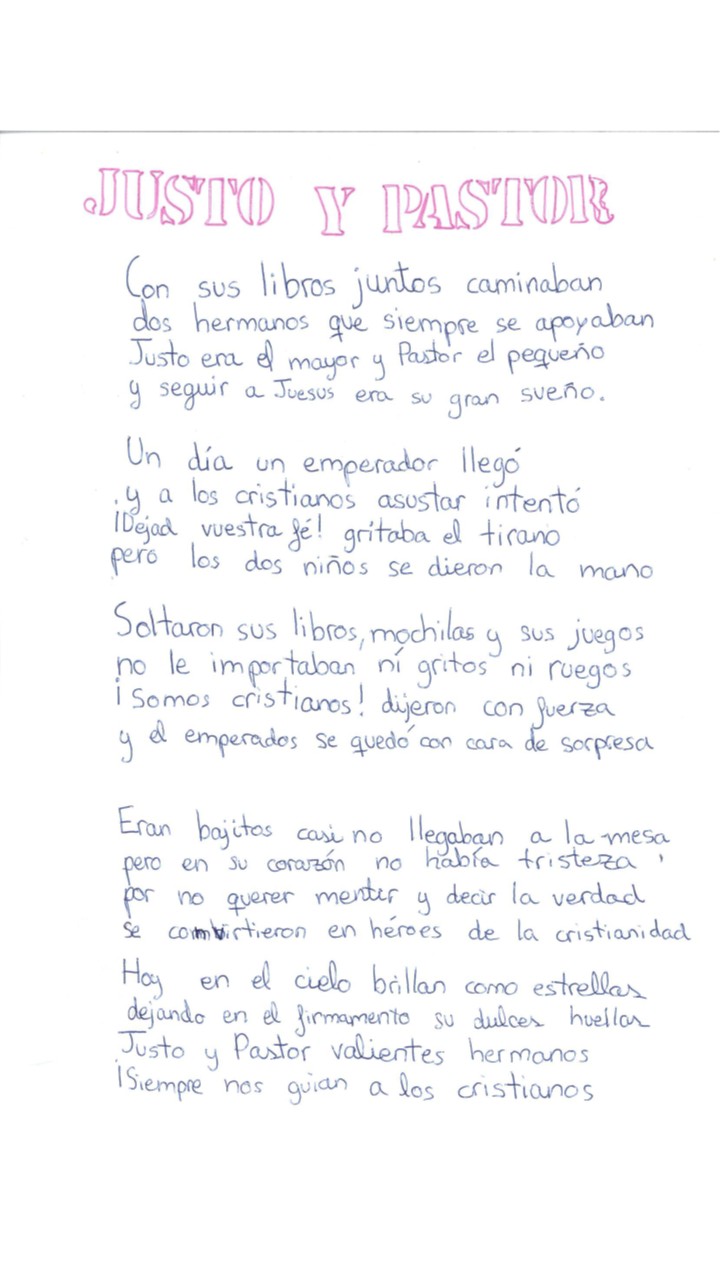 JUSTO Y PASTOR
Con sus libros juntos caminaban
dos hermanos que siempre se apoyaban
Justo era el mayor y Pastor el pequeño
y seguir a Juesus era su gran sueño.
Un día un emperador llegó
y a los cristianos asustar intentó
¡Dejad vuestra fé! gritaba el tirano
pero los dos niños se dieron la mano
Soltaron sus libros, mochilas y sus juegos
no le importaban ní gritos ni ruegos
¡Somos cristianos! dijeron con fuerza
y el emperados se quedó con cara de sorpresa
Eran bajitos casi no llegaban a la mesa
pero en su corazón no había tristeza,
por no querer mentir y decir la verdad
se combirtieron en héroes de la cristianidad
Hoy en el cielo brillan como estrellas
dejando en el firmamento su dulces huellas
Justo y Pastor valientes hermanos
¡Siempre nos guian a los cristianos